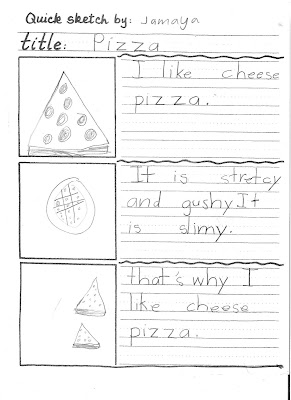 Quick sketch by: Jamaya
title: Pizza
I like cheese
pizza.
It is stretcy
and gushy It
is slimy.
that's why I
like cheese
pizza.